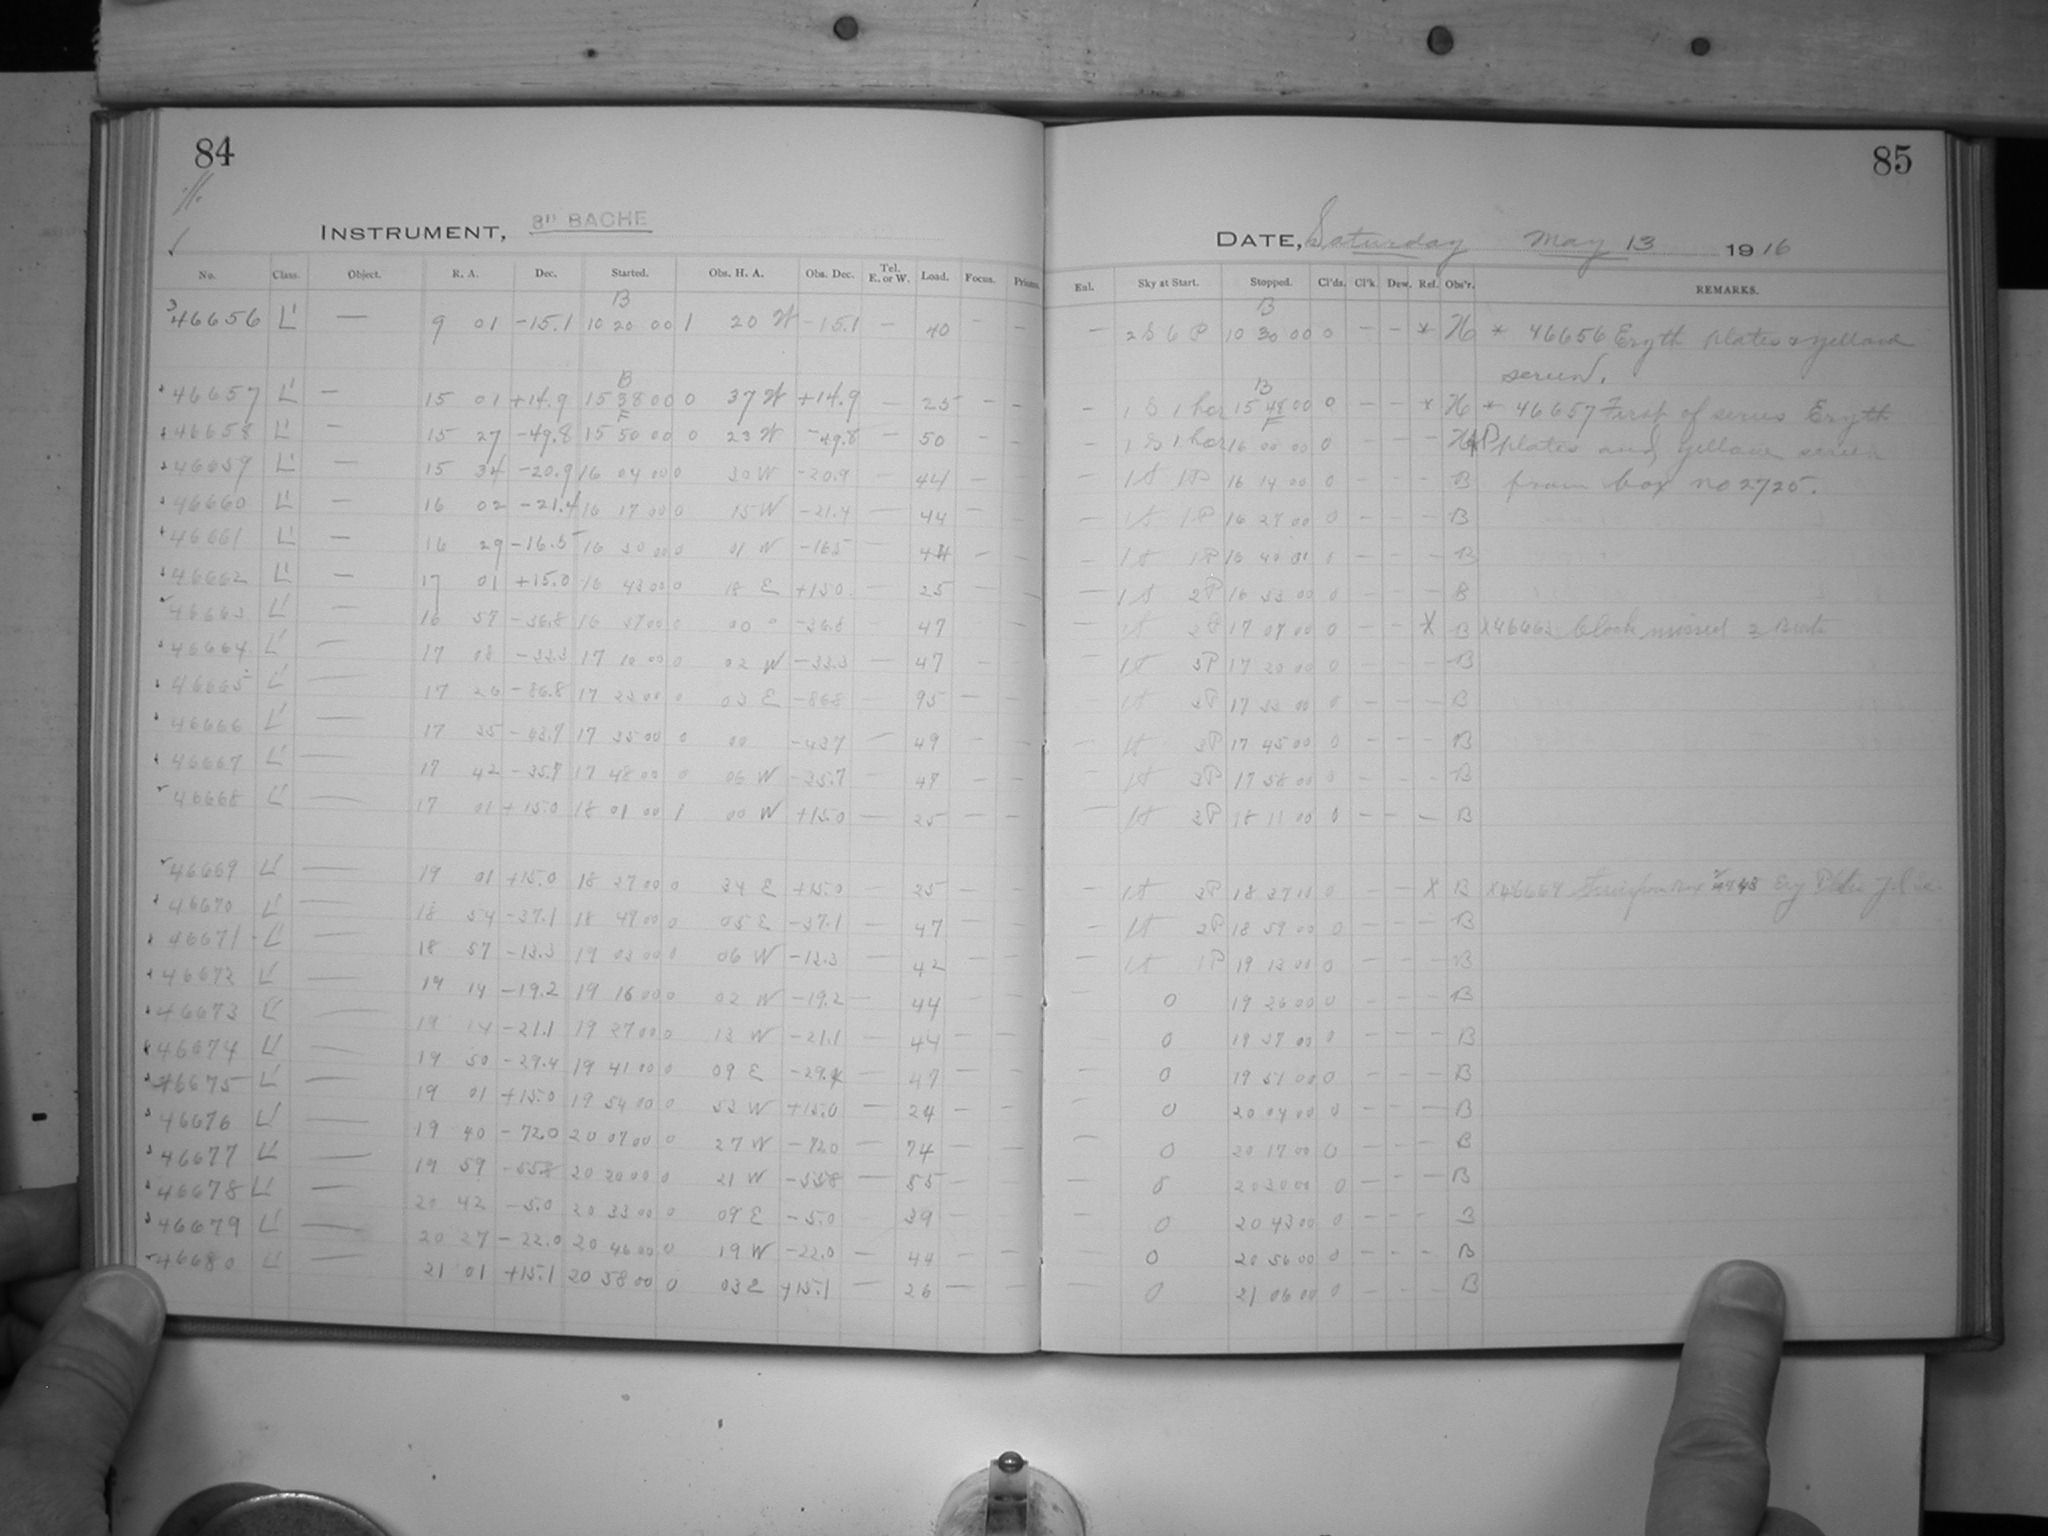 84
INSTRUMENT, 8" BACHE
No. Class. Object. R. A. Dec. Started. Obs. H. A. Obs. Dec. Tel. E. or W. Load. Focus. Prisms.
B
46656 L' — 9 01 -15.1 10 20 00 1 20 W -15.1 — 40 — —
B
46657 L' — 15 01 +14.9 15 38 00 0 37 W +14.9 — 25 — —
F
46658 L' — 15 27 -49.8 15 50 00 0 23 W -49.8 — 50 — —
46659 L' — 15 34 -20.9 16 04 00 0 30 W -20.9 — 44 — —
46660 L' — 16 02 -21.4 16 17 00 0 15 W -21.4 — 44 — —
46661 L' — 16 29 -16.5 16 30 00 0 01 W -16.5 — 44 — —
46662 L' — 17 01 +15.0 16 43 00 0 18 E +15.0 — 25 — —
46663 L' — 16 57 -36.8 16 57 00 0 00 0 -36.8 — 47 — —
46664 L' — 17 08 -33.3 17 10 00 0 02 W -33.3 — 47 — —
46665 L' — 17 20 -86.8 17 23 00 0 03 E -86.8 — 95 — —
46666 L' — 17 35 -43.7 17 35 00 0 00 -43.7 — 49 — —
46667 L' — 17 42 -35.7 17 48 00 0 06 W -35.7 — 47 — —
46668 L' — 17 01 +15.0 18 01 00 1 00 W +15.0 — 25 — —
46669 L' — 19 01 +15.0 18 27 00 0 34 E +15.0 — 25 — —
46670 L' — 18 54 -37.1 18 49 00 0 05 E -37.1 — 47 — —
46671 L' — 18 57 -13.3 19 03 00 0 06 W -13.3 — 42 — —
46672 L' — 19 14 -19.2 19 16 00 0 02 W -19.2 — 44 — —
46673 L' — 19 14 -21.1 19 27 00 0 13 W -21.1 — 44 — —
46674 L' — 19 50 -29.4 19 41 00 0 09 E -29.4 — 47 — —
46675 L' — 19 01 +15.0 19 54 00 0 53 W +15.0 — 24 — —
46676 L' — 19 40 -72.0 20 07 00 0 27 W -72.0 — 74 — —
46677 L' — 19 59 -55.8 20 20 00 0 21 W -55.8 — 55 — —
46678 L' — 20 42 -5.0 20 33 00 0 09 E -5.0 39 — —
46679 L' — 20 27 -22.0 20 46 00 0 19 W -22.0 — 44 — —
46680 L' — 21 01 +15.1 20 58 00 0 03 E +15.1 — 26 — —
85
DATE, Saturday May 13 1916
Eul. Sky at Start. Stopped. Cl'ds. Cl'k. Dew. Ref. Obs'r. REMARKS.
B
— 2 S 6 P 10 30 00 0 — — * H * 46656 Eryth plates & yellow
screen.
B
— 1 S 1 hor 15 48 00 0 — — * H * 46657 First of series Eryth
F
— 1 S 1 hor 16 00 00 0 — — plates and yellow screen
— 1 S 1 P 16 14 00 0 — — — B from box no 2725.
— 1 S 1 P 16 27 00 0 — — — B
— 1 S 1 P 16 40 00 0 — — — B
— 1 S 2 P 16 53 00 0 — — — B
1 S 2 P 17 07 00 0 — — X B X 46663 Clock missed 2 Beats
— 1 S 3 P 17 20 00 0 — — — B
— 1 S 3 P 17 33 00 0 — — — B
— 1 S 3 P 17 45 00 0 — — — B
— 1 S 3 P 17 58 00 0 — — — B
— 1 S 3 P 18 11 00 0 — — — B
— 1 S 3 P 18 37 00 0 — — X B X 46669
— 1 S 2 P 18 59 00 0 — — — B
— 1 S 1 P 19 13 00 0 — — — B
— 0 19 26 00 0 — — — B
— 0 19 37 00 0 — — — B
— 0 19 51 00 0 — — — B
— 0 20 04 00 0 — — — B
— 0 20 17 00 0 — — — B
— 0 20 30 00 0 — — — B
— 0 20 43 00 0 — — — B
— 0 20 56 00 0 — — — B
— 0 21 06 00 0 — — — B